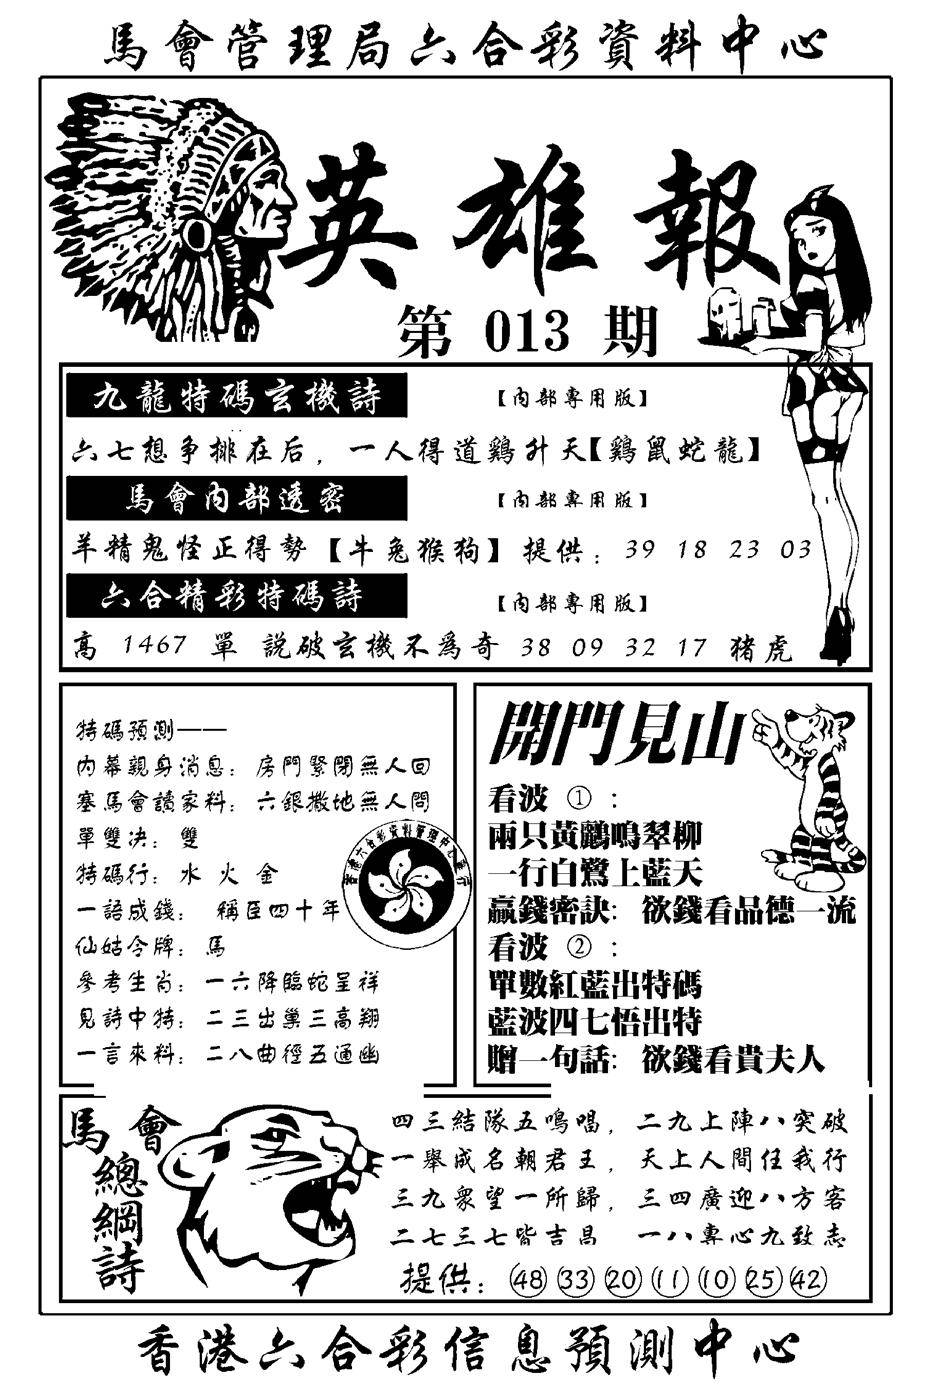 馬會管理局六合彩資料中心
英雄報
第 013 期
九龍特碼玄機詩 【內部專用版】
六七想争排在后，一人得道鷄升天【鷄鼠蛇龍】
馬會內部透密 【內部專用版】
羊精鬼怪正得勢【牛兔猴狗】提供：39 18 23 03
六合精彩特碼詩 【內部專用版】
高 1467 單 説破玄機不爲奇 38 09 32 17 猪虎
特碼預測——
内幕親身消息：房門緊閉無人回
塞馬會讀家料：六銀撒地無人問
單雙决：雙
特碼行：水 火 金
一語成錢： 稱臣四十年
仙姑令牌：馬
參考生肖：一六降臨蛇呈祥
見詩中特：二三出巢三高翔
一言來料：二八曲徑五通幽
香港六合彩資料管理中心發行
開門見山
看波 ①：
兩只黃鸝鳴翠柳
一行白鷺上藍天
贏錢密訣：欲錢看品德一流
看波 ②：
單數紅藍出特碼
藍波四七悟出特
贈一句話：欲錢看貴夫人
馬會
總綱詩
四三結隊五鳴唱，二九上陣八突破
一舉成名朝君王，天上人間任我行
三九衆望一所歸，三四廣迎八方客
二七三七皆吉昌 一八專心九致志
提供：48 33 20 11 10 25 42
香港六合彩信息預測中心